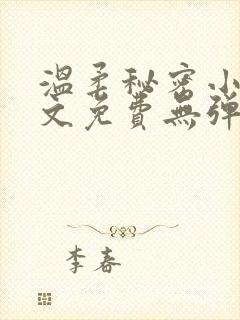 温柔秘密小
文免费無弹
李春